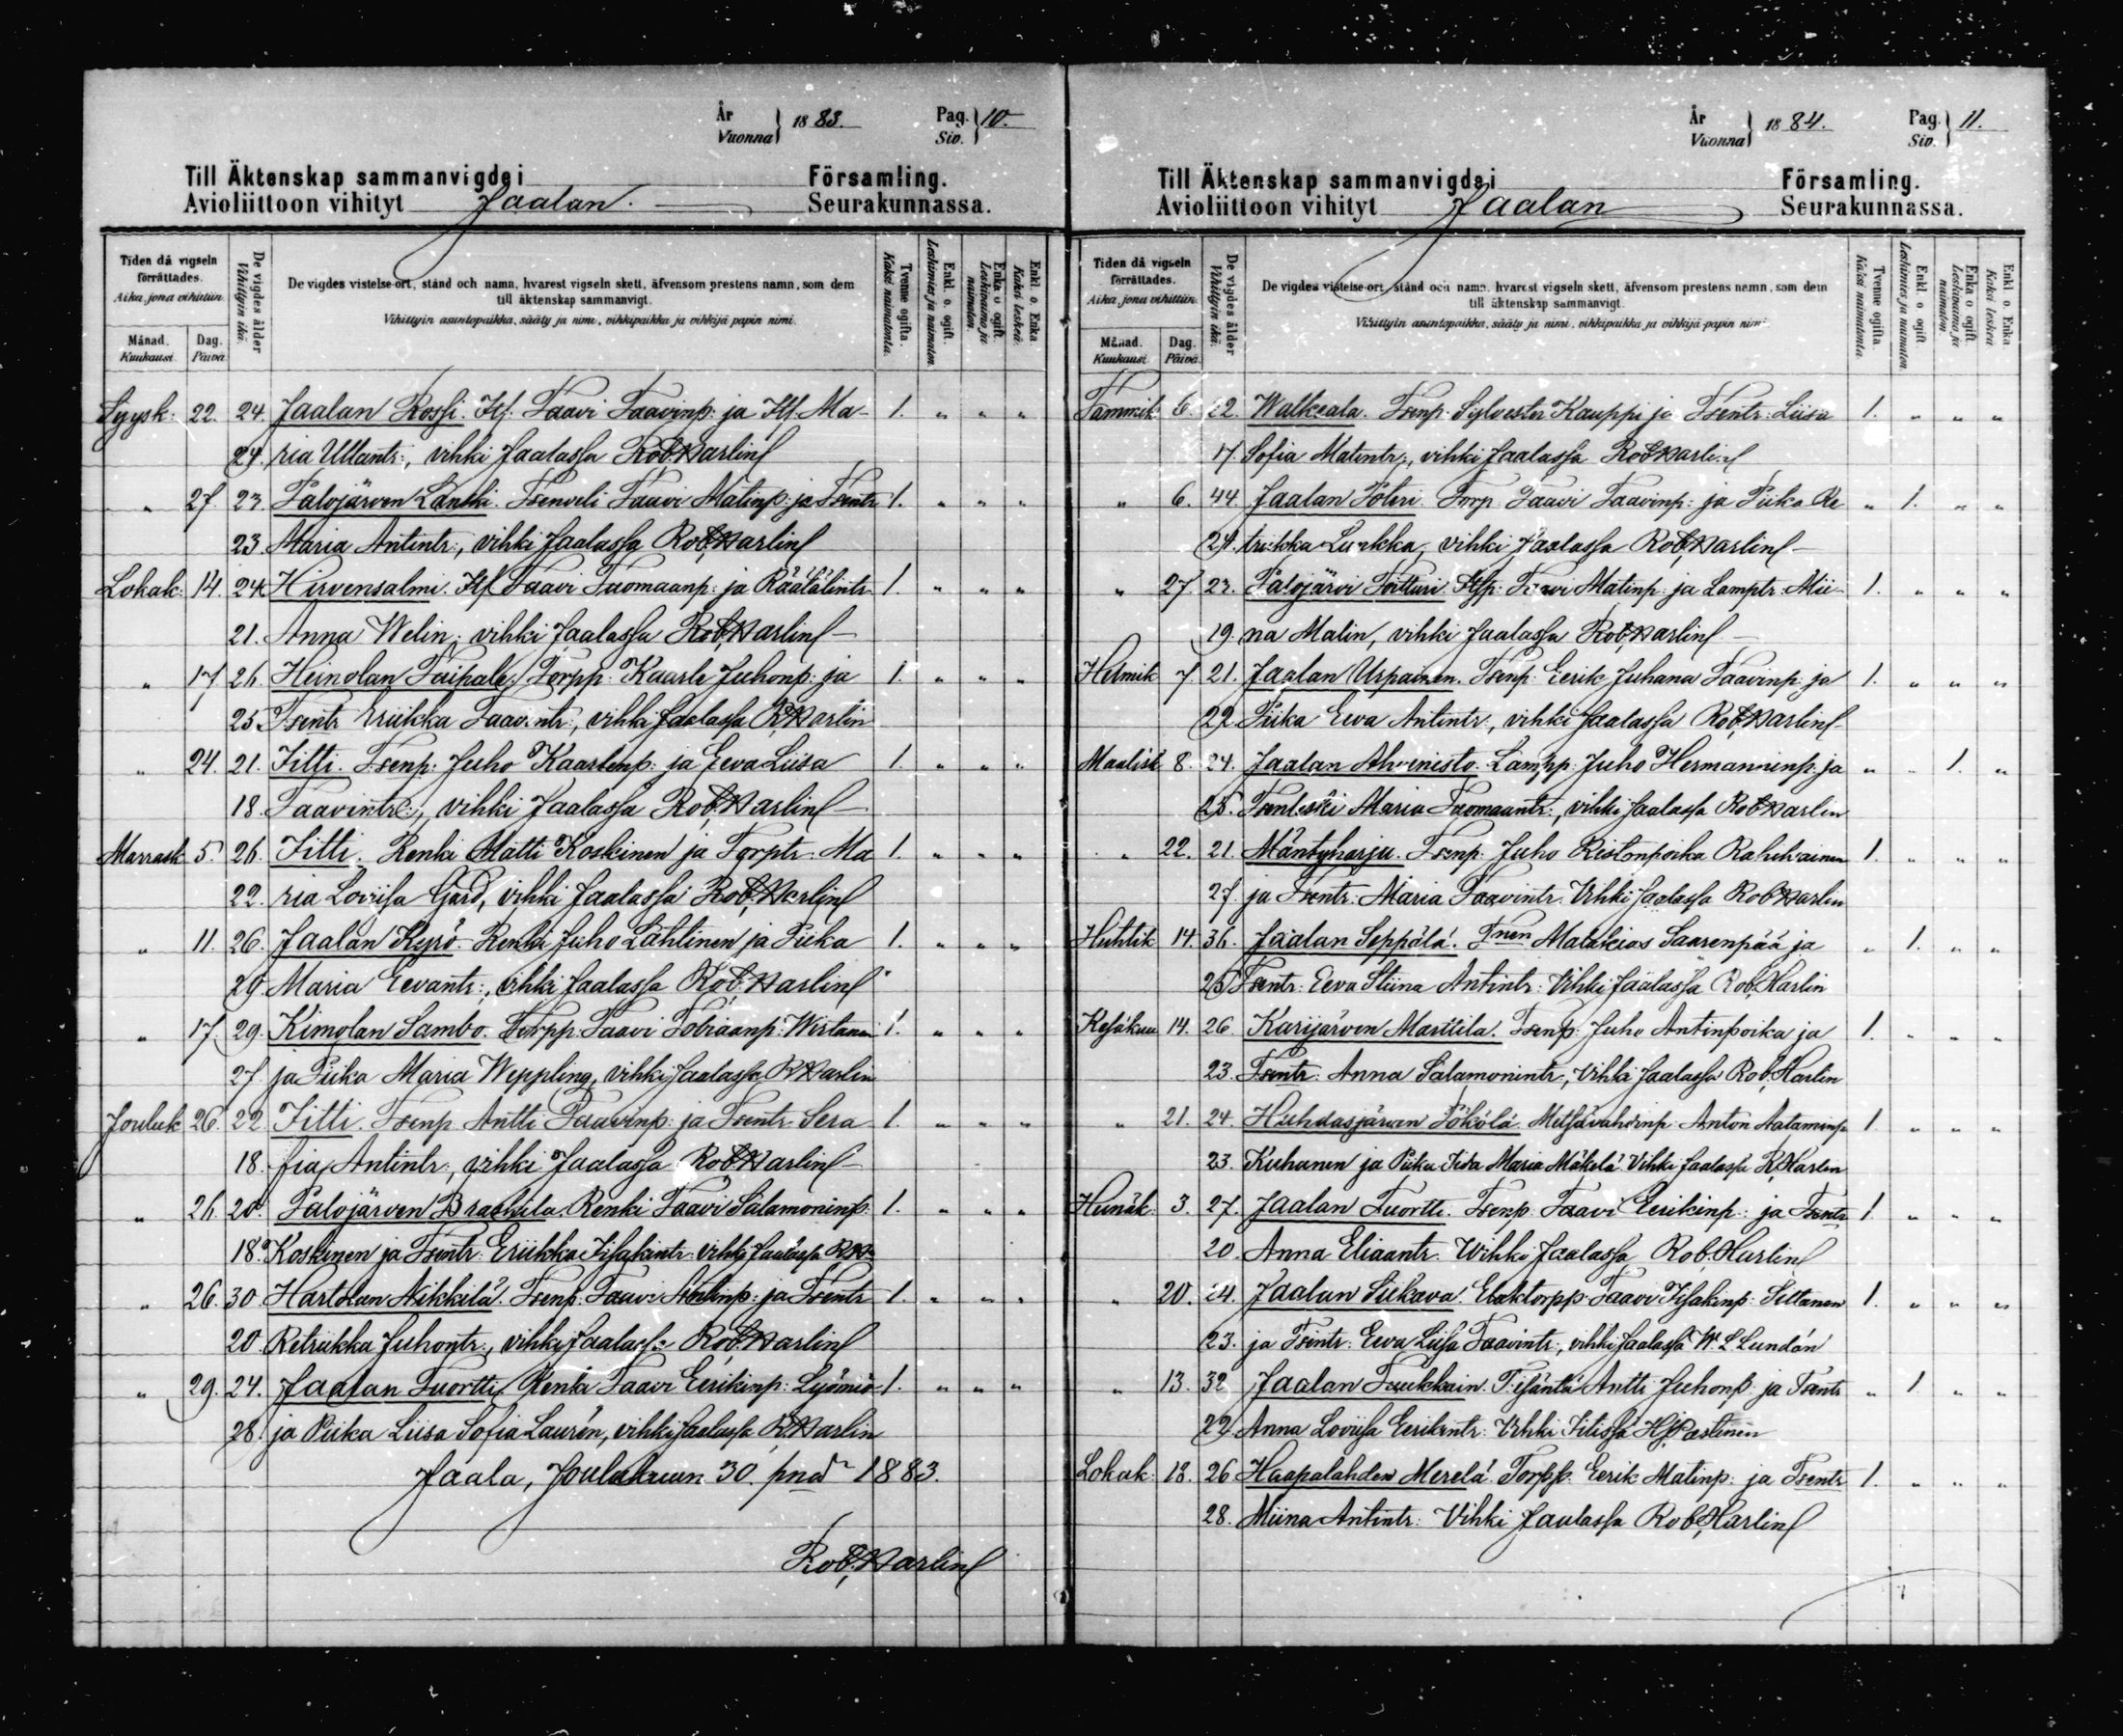 År
Vuonna } 1883.
Pag.
Siv. } 10.
Till Äktenskap sammanvigde i Församling.
Avioliittoon vihityt Jaalan. Seurakunnassa.
Tiden då vigseln förrättades.
Aika, jona vihittiin.
Månad.
Kuukausi.
Dag.
Päivä.
De vigdes ålder
Vihittyin ikä.
De vigdes vistelse-ort, stånd och namn, hvarest vigseln skett, äfvensom prestens namn, som dem
till äktenskap sammanvigt.
Vihittyin asuntopaikka, sääty ja nimi, vihkipaikka ja vihkijä papin nimi.
Tvenne ogifta.
Kaksi naimatonta.
Enkl. o. ogift.
Leskimies ja naimaton.
Enka o ogift.
Leskivaimo ja naimaton.
Enkl. o. Enka
Kaksi leskeä.
Syysk: 22. 24. Jaalan Rossi. Itf. Taavi Taavinp: ja Itf. Ma- 1. " " "
24. ria Ullantr:, vihki Jaalassa Rob. Harlin
" 27. 23. Palojärven Lanthi. Tsenveli Taavi Matinp: ja Tsentr 1. " " "
23. Maria Antintr:, vihki Jaalassa Rob. Harlin
Lokak: 14. 24. Hirvensalmi. Itf. Taavi Tuomaanp: ja Räätälintr 1. " " "
21. Anna Welin, vihki Jaalassa Rob. Harlin
" 17 26. Heinolan Taipale, Torpp. Kaarle Juhonp: ja 1. " " "
25 Tsentr Eriikka Taavintr:, vihki Jaalassa R. Harlin
" 24. 21. Iitti. Tsenp: Juho Kaarlenp: ja Eeva Liisa 1. " " "
18. Taavintr:, vihki Jaalassa Rob. Harlin
Marrask 5. 26. Iitti. Renki Matti Koskinen ja Torptr. Ma 1. " " "
22. ria Loviisa Gård, vihki Jaalassa Rob. Harlin
" 11. 26. Jaalan Kyrö. Renki Juho Lahtinen ja Piika 1. " " "
29. Maria Eevantr:, vihki Jaalassa Rob. Harlin
" 17. 29. Kimolan Sambo. Torpp. Taavi Tobiaanp: Wirtanen 1. " " "
27 ja Piika Maria Weppling, vihki Jaalassa R. Harlin
Jouluk 26. 22. Iitti. Tsenp. Antti Taavinp: ja Tsentr. Sera 1. " " "
18. fia Antintr:, vihki Jaalassa Rob. Harlin
" 26. 20. Palojärven Brathila. Renki Taavi Salamoninp: 1. " " "
18. Koskinen ja Tsentr: Eriikka Iisakintr: vihki Jaalassa R. H.
" 26. 30 Hartolan Nikkilä. Tsenp. Taavi Antinp: ja Tsentr 1. " " "
20. Retriikka Juhontr:, vihki Jaalassa Rob. Harlin
" 29. 24. Jaalan Tuortti, Renki Taavi Eerikinp: Lyömiö 1. " " "
28. ja Piika Liisa Sofia Laurén, vihki Jaalassa R. Harlin
Jaala, Joulukuun 30. pnä 1883.
Rob. Harlin
År
Vuonna } 1884.
Pag.
Siv. } 11.
Till Äktenskap sammanvigde i Församling.
Avioliittoon vihityt Jaalan Seurakunnassa.
Tiden då vigseln förrättades.
Aika, jona vihittiin.
Månad.
Kuukausi
Dag.
Päivä.
De vigdes ålder
Vihittyin ikä.
De vigdes vistelse-ort, stånd och namn, hvarest vigseln skett, äfvensom prestens namn, som dem
till äktenskap sammanvigt.
Vihittyin asuntopaikka, sääty ja nimi, vihkipaikka ja vihkijä papin nimi.
Tvenne ogifta.
Kaksi naimatonta.
Enkl. o ogift
Leskimies ja naimaton.
Enka o ogift.
Leskivaimo ja naimaton.
Enkl. o. Enka
Kaksi leskeä
Tammik 6. 22. Walkeala. Tsenp: Sylvester Kauppi ja Tsentr: Liisa 1. " " "
17. Sofia Matintr:, vihki Jaalassa Rob. Harlin
" 6. 44. Jaalan Pöheri. Torp. Taavi Taavinp: ja Piika Re " 1. " "
24. triikka Lurkka, vihki Jaalassa Rob. Harlin
" 27. 23. Palojärvi Toitturi. Itsp: Taavi Matinp: ja Lamptr: Mii- 1. " " "
19. na Malin, vihki Jaalassa Rob. Harlin
Helmik 7. 21. Jaalan Urpainen. Tsenp: Eerik Juhana Taavinp: ja 1. " " "
22. Piika Eeva Antintr:, vihki Jaalassa Rob. Harlin
Maalisk 8. 24. Jaalan Ahvenisto. Lampp: Juho Hermanninp: ja " " 1. "
25. Tsenleski Maria Tuomaantr:, vihki Jaalassa Rob Harlin
" 22. 21. Mäntyharju. Tsenp: Juho Ristonpoika Rahikainen 1. " " "
27. ja Tsentr: Maria Taavintr. Vihki Jaalassa Rob Harlin
Huhtik 14. 36. Jaalan Seppälä. Tnen Malakias Saarenpää ja " 1. " "
25 Tsentr: Eeva Stiina Antintr: Vihki Jaalassa Rob. Harlin
Kesäkuu 14. 26. Karijärven Marttila. Tsenp: Juho Antinpoika ja 1. " " "
23. Tsentr: Anna Salamonintr:, Vihki Jaalassa Rob. Harlin
" 21. 24. Huhdasjärven Pökölä. Metsävahdinp: Anton Aataminp 1. " " "
23. Kuhanen ja Piika Iida Maria Mäkelä. Vihki Jaalassa R. Harlin
Heinäk: 3. 27. Jaalan Tuortti. Tsenp. Taavi Eerikinp: ja Tsentr 1. " " "
20. Anna Eliaantr. Wihki Jaalassa Rob. Harlin
" 20. 24. Jaalan Siikava. Elaktorpp: Taavi Iisakinp: Seltanen 1. " " "
23. ja Tsentr: Eeva Liisa Taavintr:, vihki Jaalassa W. L. Lundán
" 13. 32 Jaalan Tuukkain. T:isäntä Antti Juhonp: ja Tsentr " 1. " "
22. Anna Loviisa Eerikintr: Vihki Iitissä Hj. Pastinen
Lokak: 18. 26 Haapalahden Merelä. Torpp: Eerik Matinp: ja Tsentr 1. " " "
28. Miina Antintr: Vihki Jaalassa Rob. Harlin